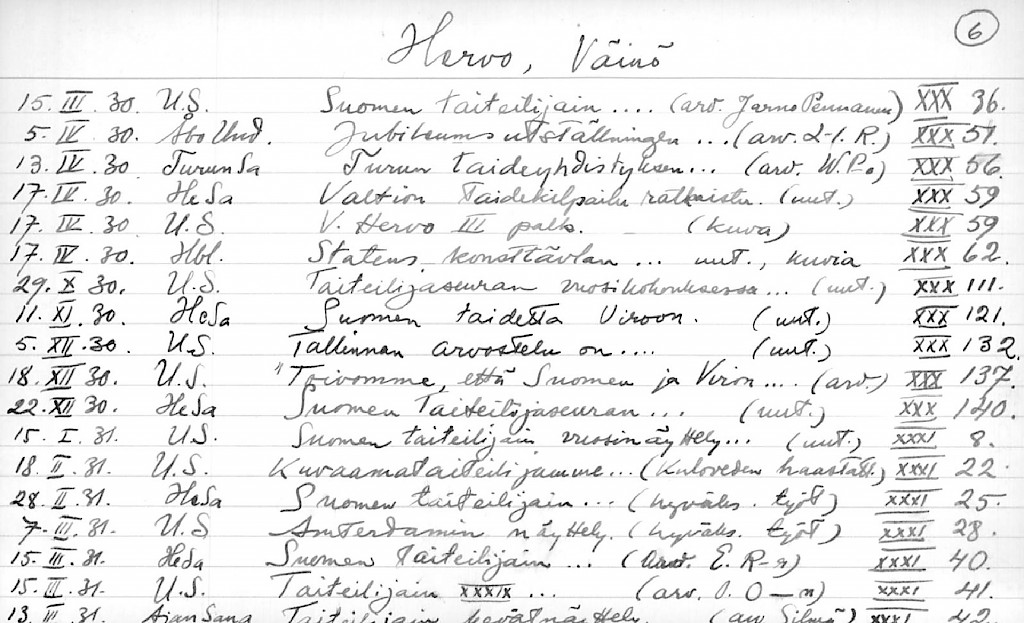 6
Hervo, Väinö
15. III. 30. U.S. Suomen taiteilijain .... (arv. Jarno Pennanen) XXX 36.
5. IV. 30. Åbo Und. Jubileumsutställningen ... (arv. L-l. R.) XXX 51.
13. IV. 30 TurunSa Turun taideyhdistyksen... (arv. W.P.) XXX 56.
17. IV. 30. HeSa Valtion Taidekilpailu ratkaistu. (uut.) XXX 59
17. IV. 30 U.S. V. Hervo III palk. – (kuva) XXX 59
17. IV. 30. Hbl. Statens konsttävlan ... uut., kuvia XXX 62.
29. X 30. U.S. Taiteilijaseuran vuosikokouksessa... (uut.) XXX 111.
11. XI. 30. HeSa Suomen taidetta Viroon. (uut.) XXX 121.
5. XII. 30. U.S. Tallinnan arvostelu on .... (uut.) XXX 132.
18. XII 30. U.S. "Toivomme, että Suomen ja Viron.... (arv.) XXX 137.
22. XII 30. HeSa Suomen Taiteilijaseuran... (uut.) XXX 140.
15. I. 31. U.S. Suomen taiteilijain vuosinäyttely... (uut.) XXXI 8.
18. II. 31. U.S. Kuvaamataiteilijamme... (Kuloveden haastatt.) XXXI 22.
28. II. 31. HeSa Suomen taiteilijain ... (hyväks. työt) XXXI 25.
7. III. 31. U.S Amsterdamin näyttely. (hyväks. työt) XXXI 28.
15. III. 31. HeSa Suomen Taiteilijain ... (arv. E. R-r) XXXI 40.
15. III. 31. U.S. Taiteilijain XXXIX ... (arv. O. O–n) XXXI 41.
13. III. 31. AjanSana Taiteilijain kevätnäyttely. (arv Silmä) XXXI 42.